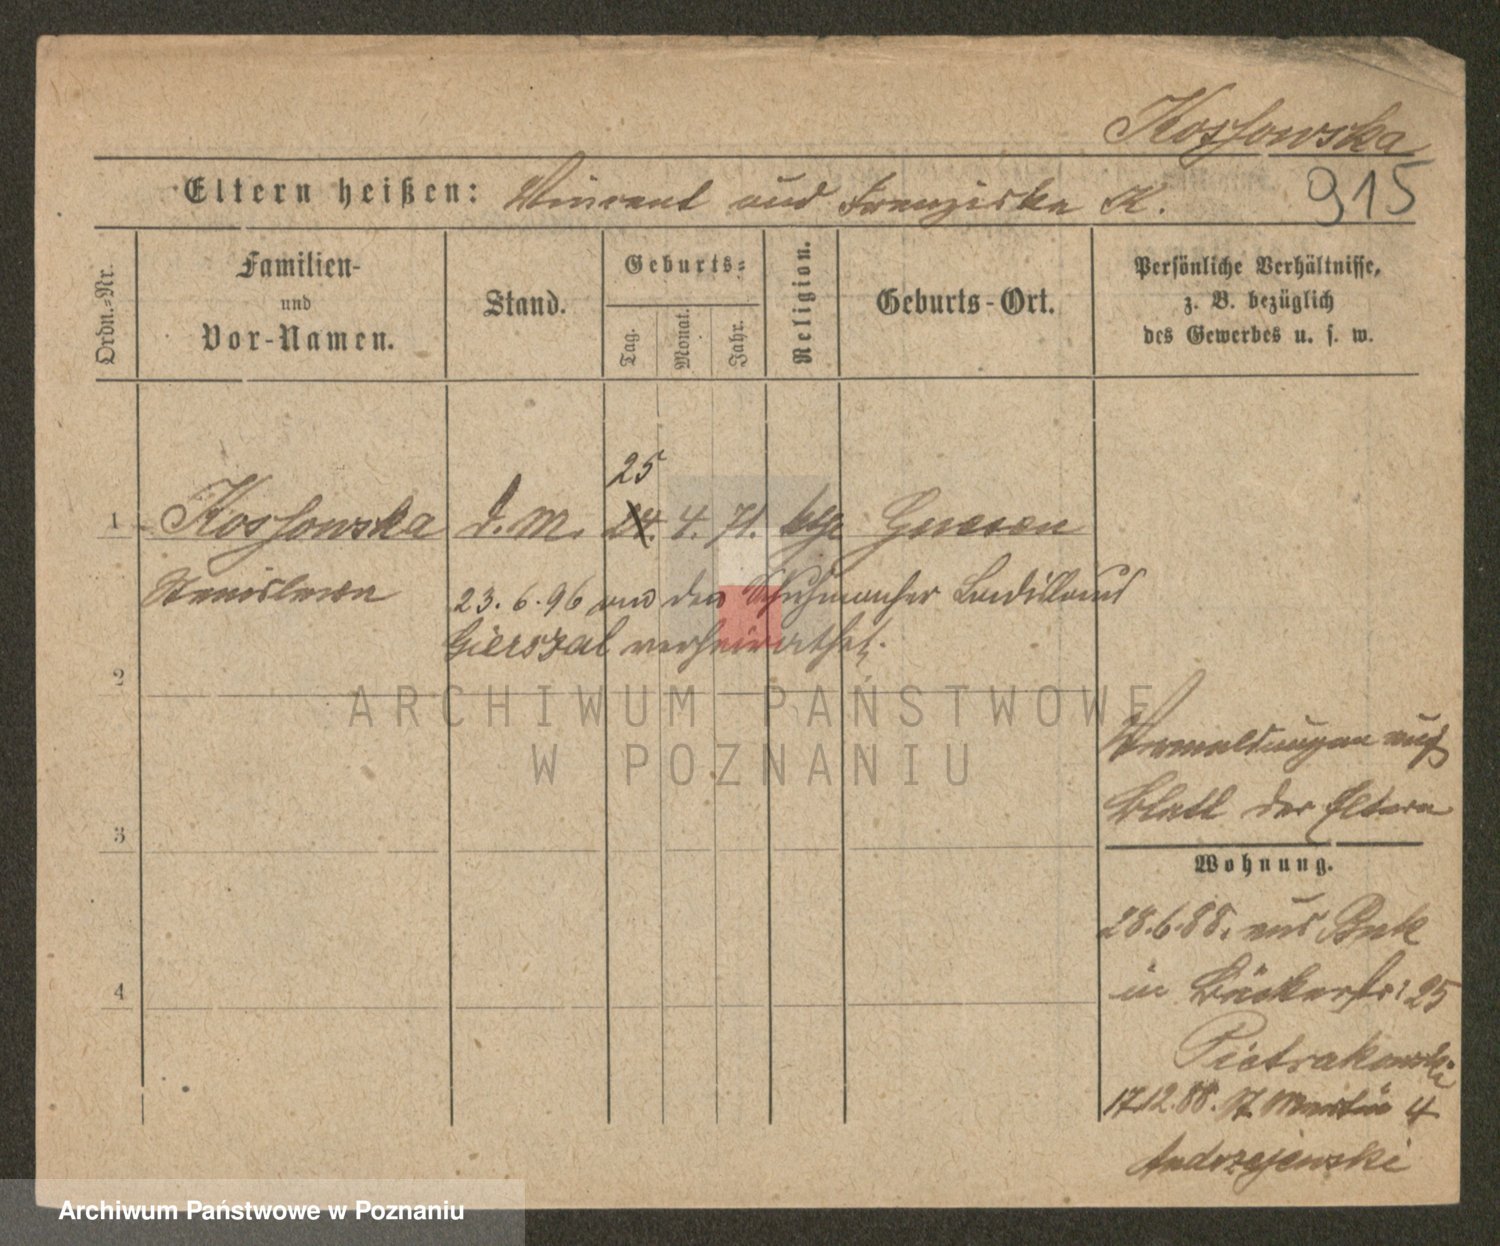 Kossowska
Eltern heißen: Vincent und Franziska K. 915
Ordn.-Nr.
Familien-
und
Vor-Namen.
Stand.
Geburts-
Tag. Monat. Jahr.
Religion.
Geburts-Ort.
Persönliche Verhältnisse,
z. B. bezüglich
des Gewerbes u. s. w.
25
1 Kossowska d. M. 24. 4. 71. kth Gnesen
Stanislawa 23. 6. 96 an den Schuhmacher
verheirathet.
2
ARCHIWUM PAŃSTWOWE
W POZNANIU
auf
Blatt der Eltern
3
Wohnung.
28.6.88. aus Buk
4
in Bäckerstr: 25
Pietrakowski
17.12.88. St. Martin 4
Andrzejewski
Archiwum Państwowe w Poznaniu